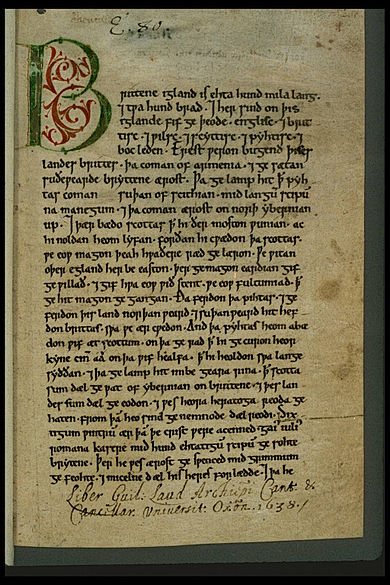 E. 80
Brittene igland is ehta hund mila lang.
⁊ tƿa hund brad. ⁊ her sind on þis
iglande fif geþeode. englisc. ⁊ brit
tisc. ⁊ ƿilsc. ⁊ scyttisc. ⁊ pyhtisc. ⁊
boc leden. Erest ƿeron bugend þises
landes brittes. þa coman of armenia. ⁊ gesætan
suðeƿearde bryttene ærost. Þa gelamp hit ꝥ pyh
tas coman suþan of scithian. mid langū scipū
na manegum. ⁊ þa coman ærost on norþ ybernian
up. ⁊ þær bædo scottas ꝥ hi ðer moston ƿunian. ac
hi noldan heom lyfan. forðan hi cƿædon þa scottas.
ƿe eoƿ magon þeah hƿaðere ræd gelæron. Ƿe ƿitan
oþer egland her be easton. þer ge magon eardian gif
ge ƿillað. ⁊ gif hƿa eoƿ ƿiðstent. ƿe eoƿ fultumiað. ꝥ
ge hit magon gegangan. Ða ferdon þa pihtas. ⁊ ge
ferdon þis land norþanƿeard. ⁊ suþanƿeard hit hef
don brittas. sƿa ƿe ær cƿedon. And þa pyhtas heom abæ
don ƿif æt scottum. on þa gerad ꝥ hi gecuron heora
kyne cinn aa on þa ƿif healfa. ꝥ hi heoldon sƿa lange
syððan. ⁊ þa gelamp hit imbe geara rina. ꝥ scotta
sum dæl geƿat of ybernian on brittene. ⁊ þes lan
des sum dæl geeodon. ⁊ ƿes heora heratoga reoda ge
haten. from þā heo sind genemnode dæl reodi. Six
tigum ƿintrū ær þā þe crist ƿere acenned. gaius iulius
romana kasere mid hund ehtatigū scipū gesohte
brytene. Þer he ƿes ærost gesƿenced mid grimmum
gefeohte. ⁊ micelne dæl his heres forlædde. ⁊ þa he
Liber Guil: Laud Archiepi Cant: &
Cancellar. Universit: Oxon. 1638.